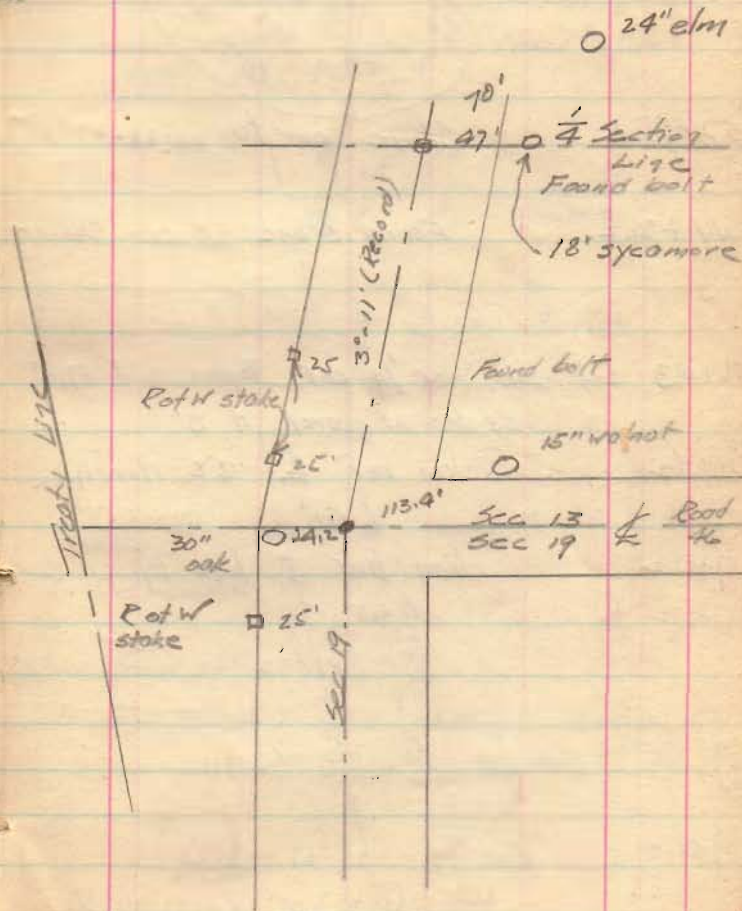 24" elm
70'
47' 1/4 Section
Line
Found bolt
18' sycamore
3°-11' (Record)
25
R of W stake
Found bolt
25'
15" walnut
Treaty Line
113.4'
24.2
30"
oak
Sec 13
Sec 19
Road
46
R of W
stake
25'
Sec 19